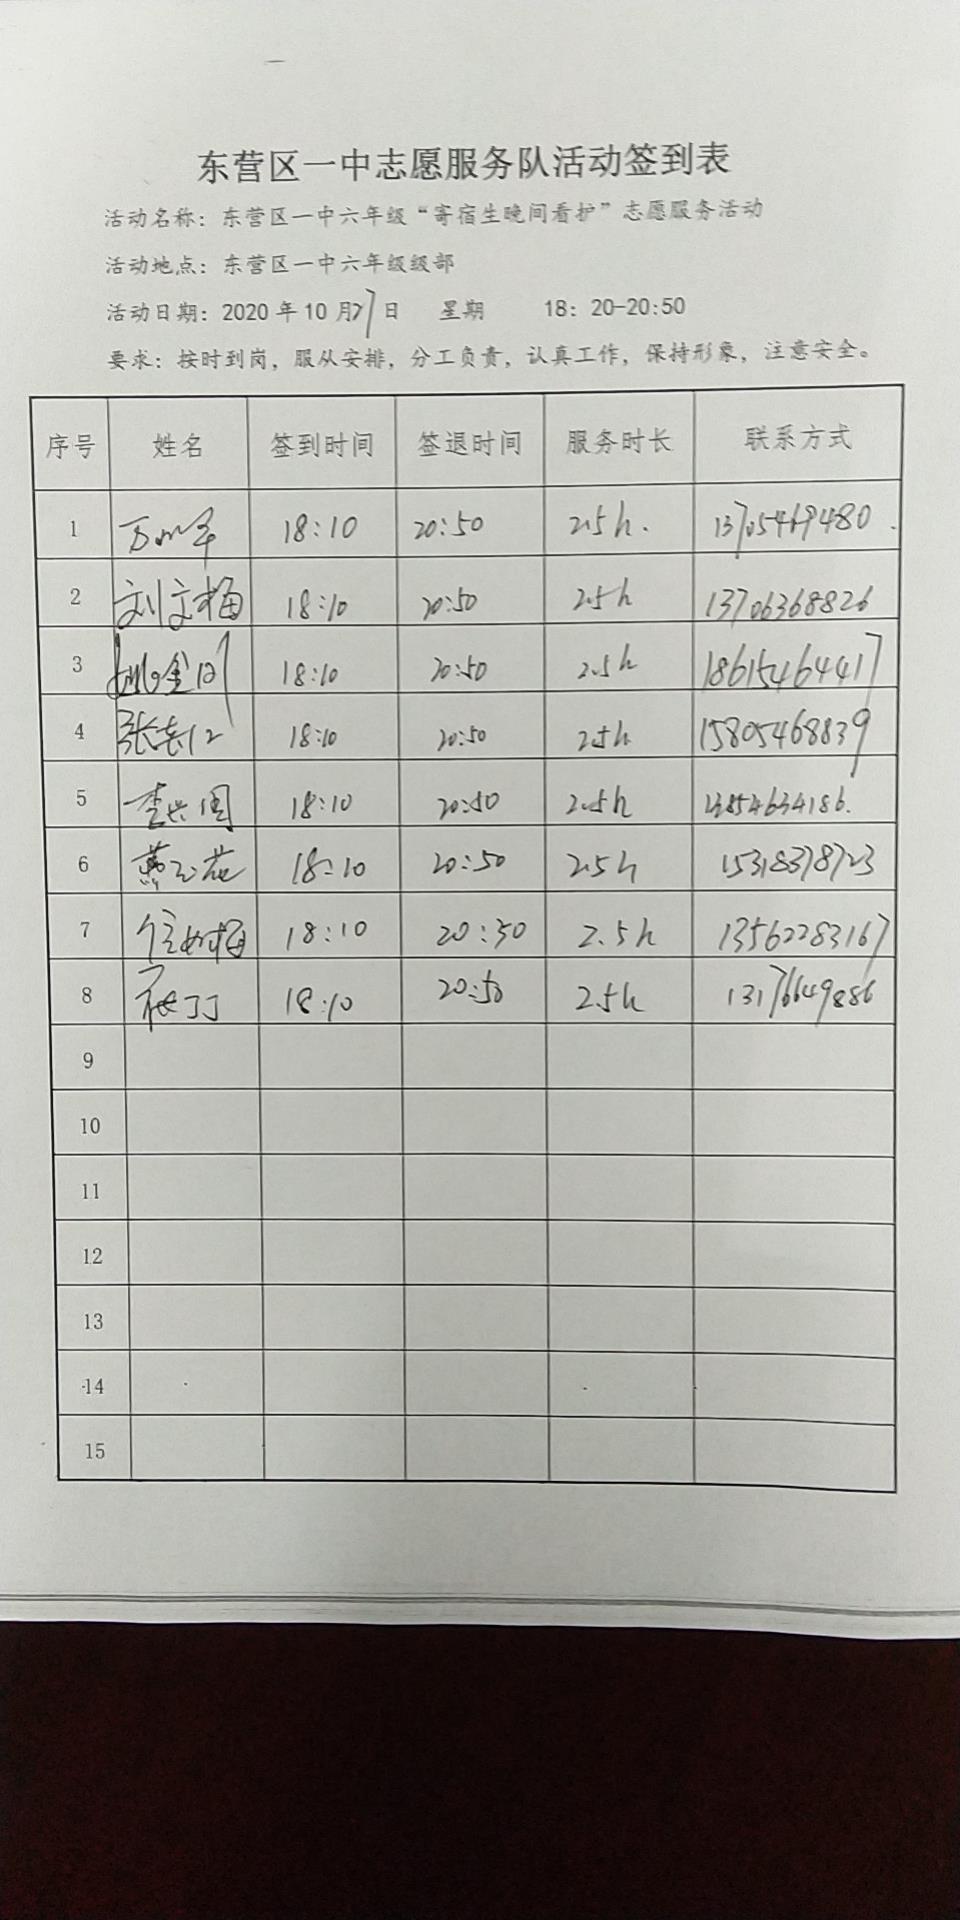 东营区一中志愿服务队活动签到表
活动名称：东营区一中六年级“寄宿生晚间看护”志愿服务活动
活动地点：东营区一中六年级级部
活动日期：2020 年 10 月27日 星期 18：20-20:50
要求：按时到岗，服从安排，分工负责，认真工作，保持形象，注意安全。
序号 姓名 签到时间 签退时间 服务时长 联系方式
1 18:10 20:50 2.5h. 13705469480
2 刘文梅 18:10 20:50 2.5h 13706368826
3 18:10 20:50 2.5h 18615464417
4 18:10 20:50 2.5h 15805468839
5 李兴国 18:10 20:50 2.5h 13854634186.
6 燕玉花 18:10 20:50 2.5h 15318378723
7 18:10 20:50 2.5h 13562283167
8 18:10 20:50 2.5h 13176649886
9
10
11
12
13
14
15